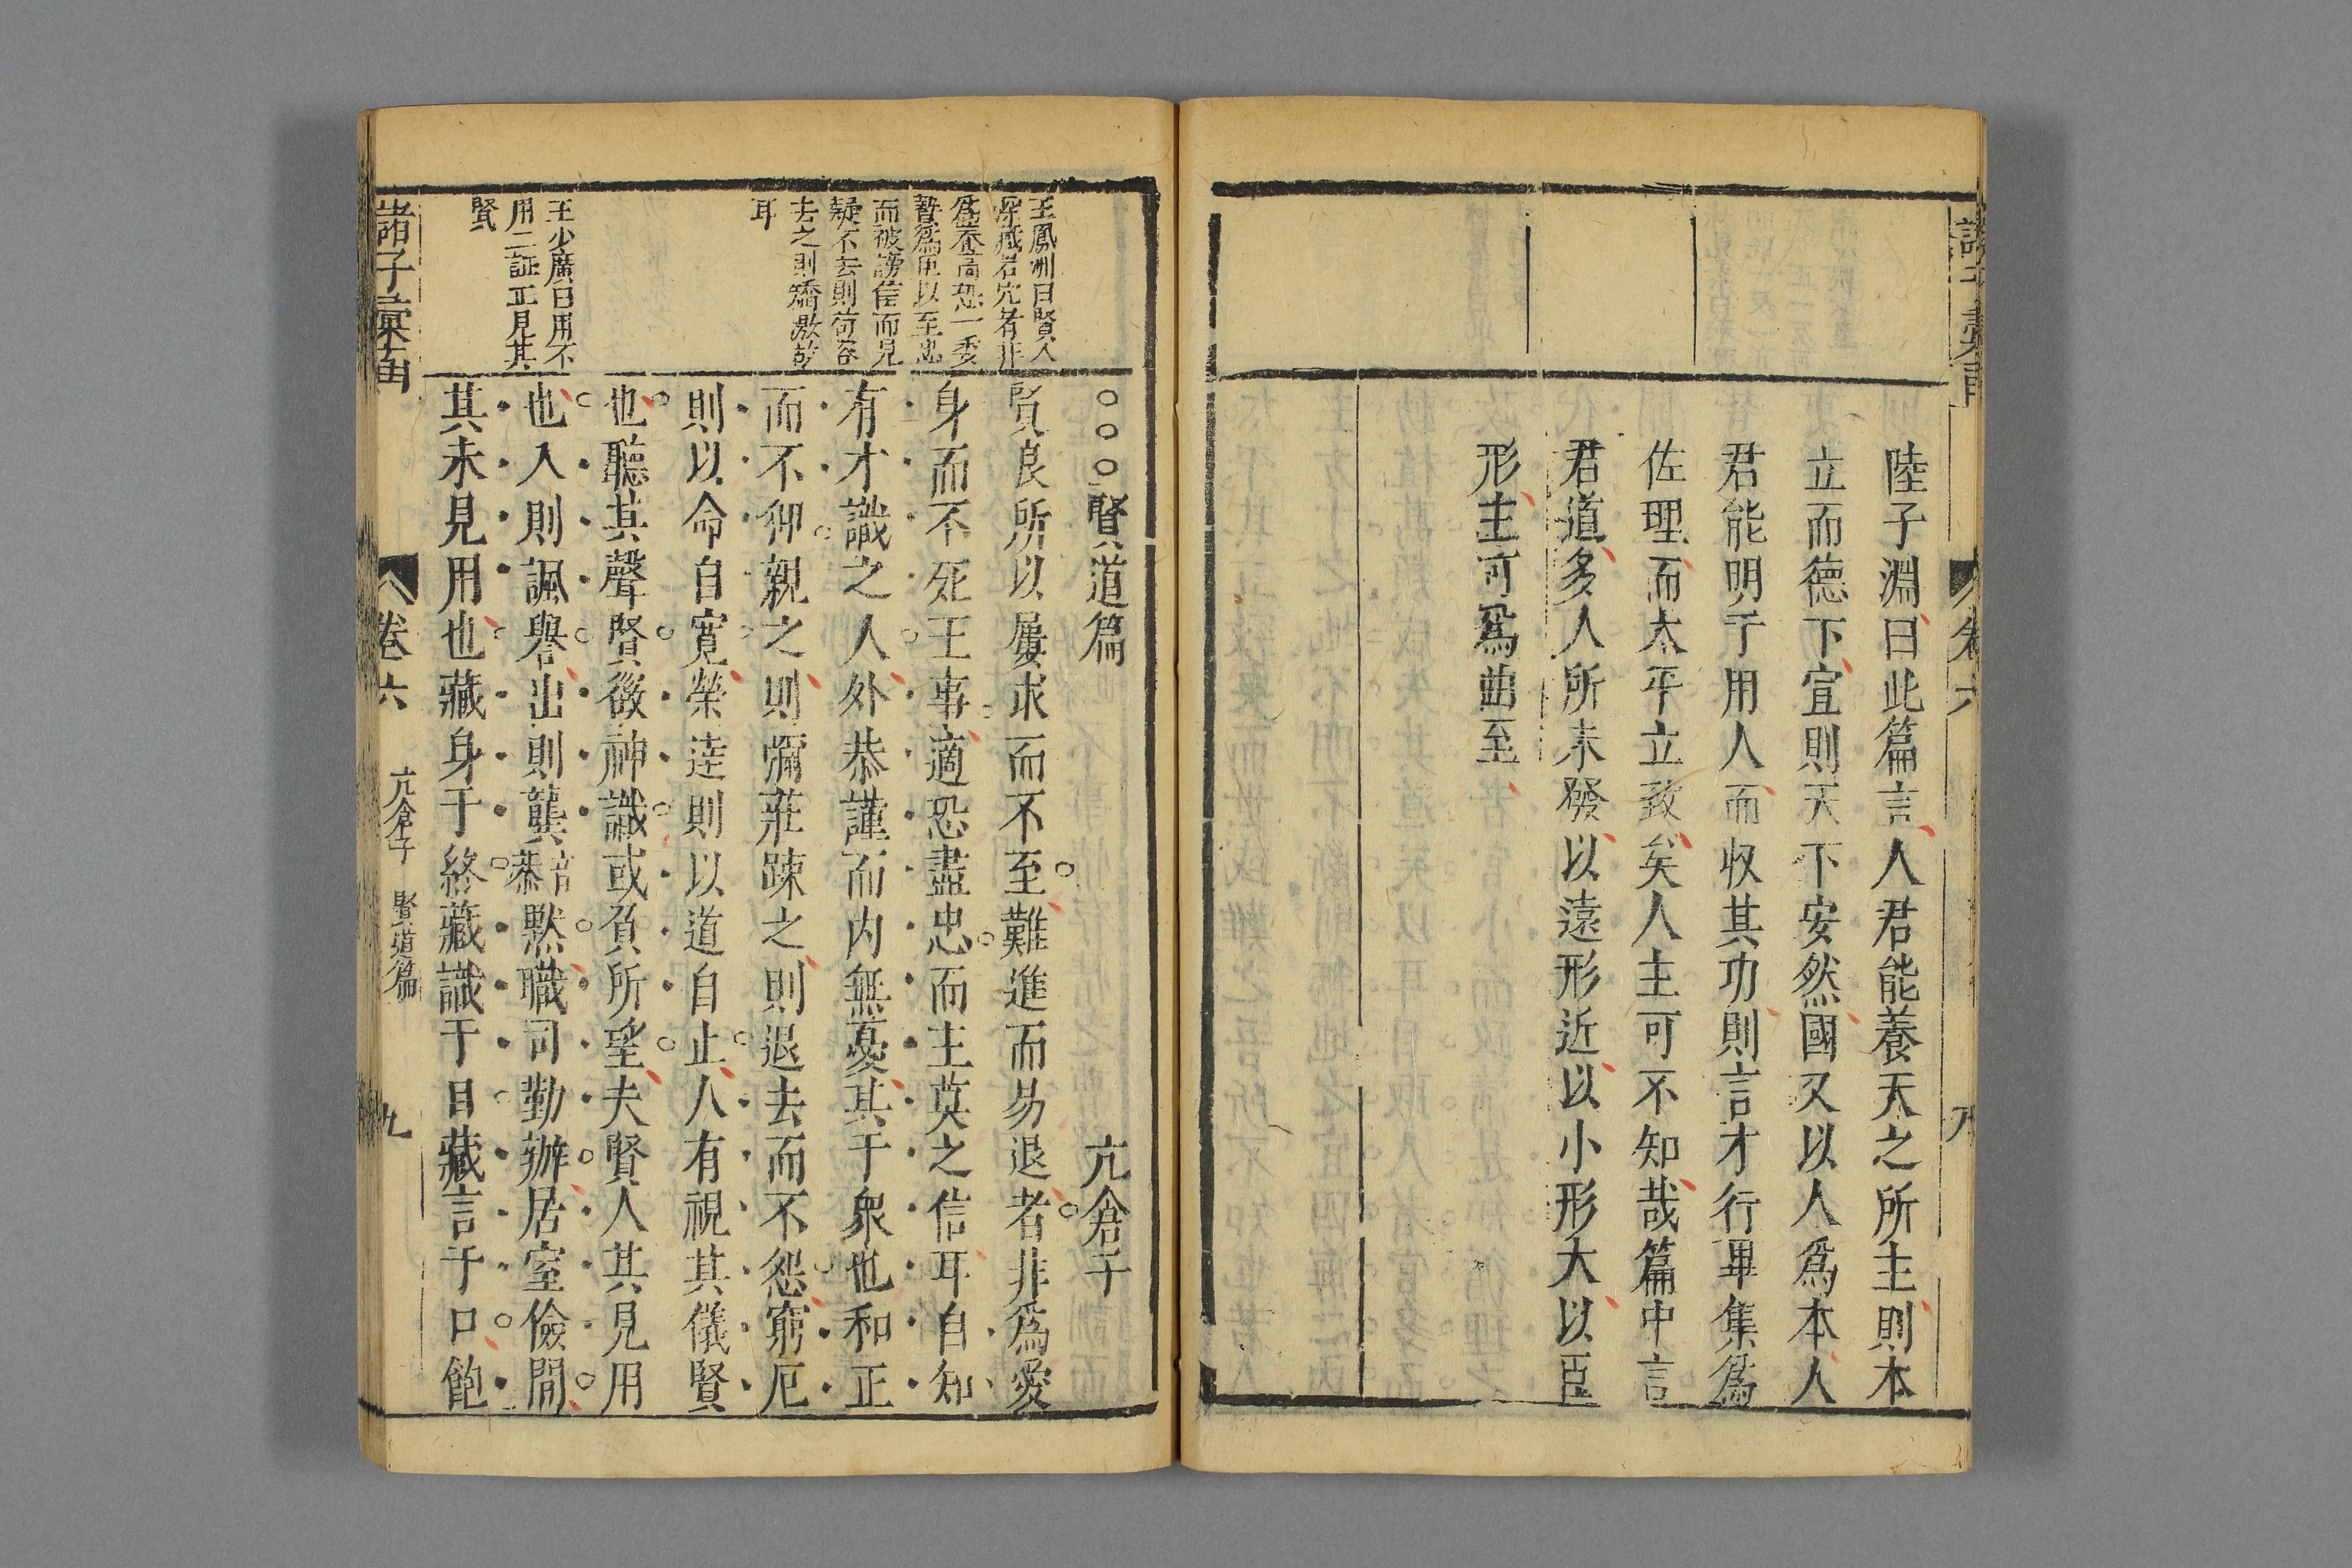 陸子淵曰此篇言人君能養天之所主則本
立而德下宜則天下安然國又以人爲本人
君能明于用人而收其功則言才行畢集爲
佐理而太平立致矣人主可不知哉篇中言
君道多人所未發以遠形近以小形大以臣
形主可爲曲至
賢道篇 亢倉子
賢良所以屢求而不至難進而易退者非爲愛
身而不死王事適恐盡忠而主莫之信耳自知
有才識之人外恭謹而内無憂其于衆也和正
而不狎親之則彌莊踈之則退去而不怨窮厄
則以命自寬榮達則以道自止人有視其儀賢
也聽其聲賢徵神識或負所望夫賢人其見用
也入則諷譽出則龔音恭默職司勤辦居室儉閒
其未見用也藏身于終藏識于目藏言于口飽
王鳳洲曰賢人
深藏岩穴者非
爲養高恐一委
贄爲臣以至忠
而被謗信而見
疑不去則苟容
去之則矯激故
耳
王少廣曰用不
用二証正見其
賢
諸子彙函
卷六
亢倉子 賢道篇
九